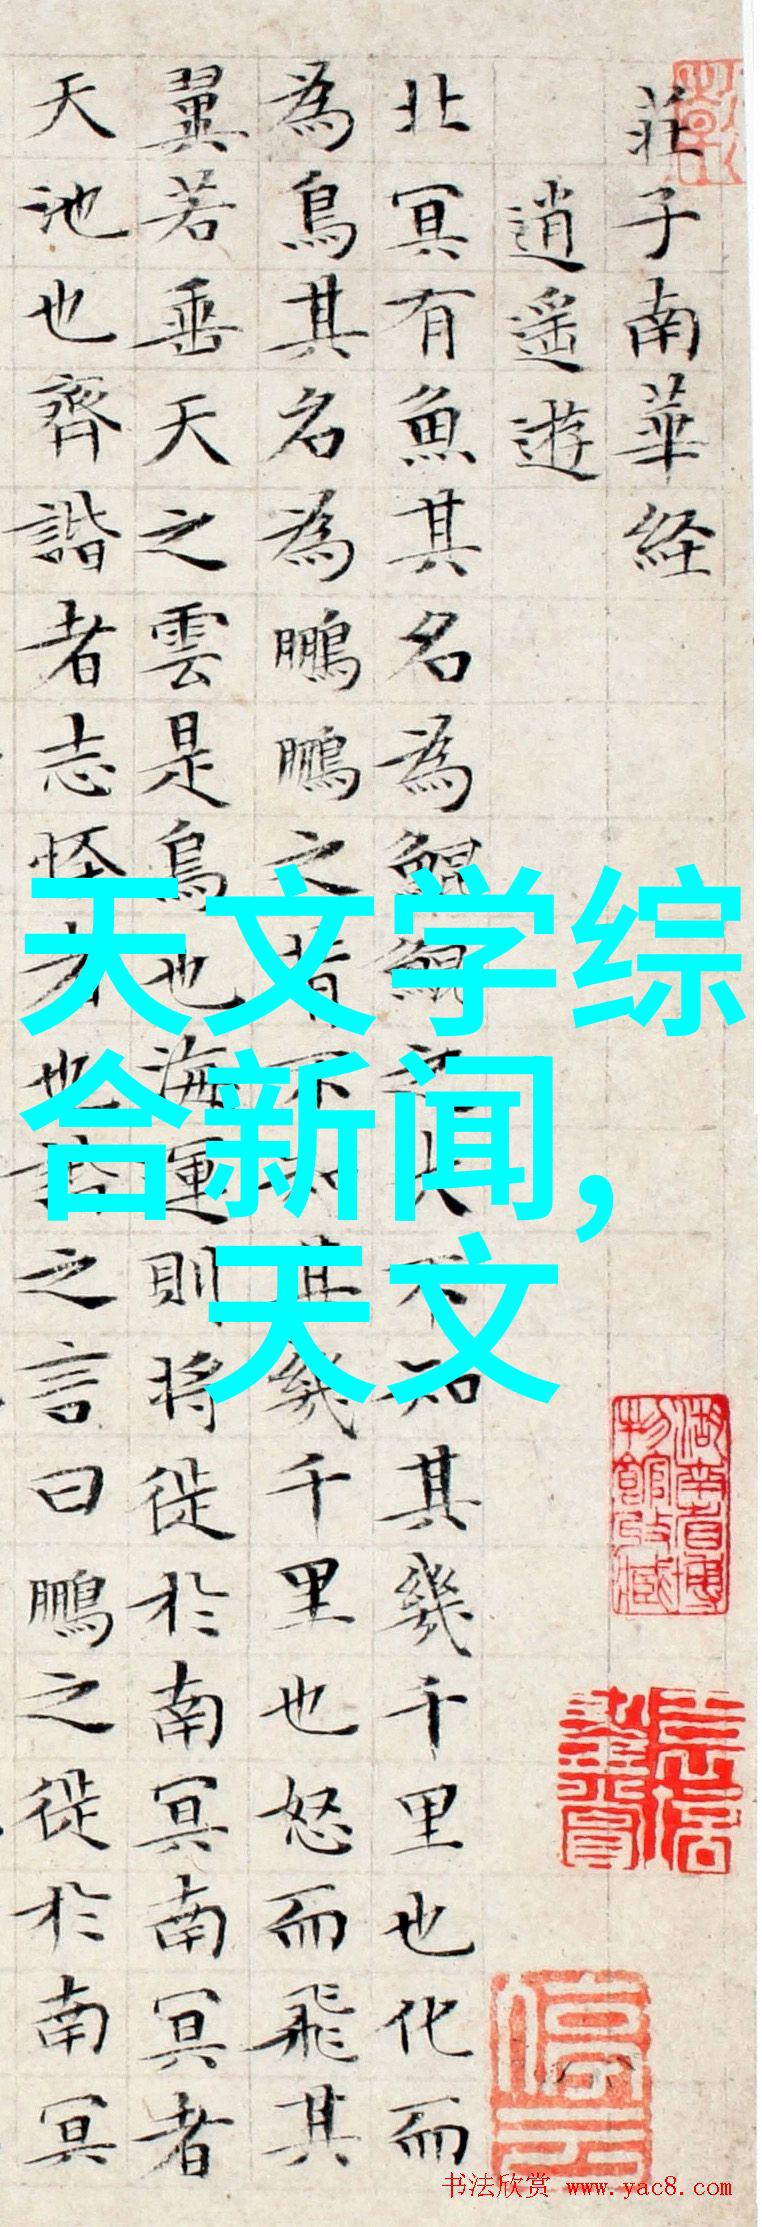 莊子南華経
逍遥遊
北冥有魚其名為鯤鯤之大不知其幾千里也化而
為鳥其名為鵬鵬之背不知其幾千里也怒而飛其
翼若垂天之雲是鳥也海運則将徙於南冥南冥者
天池也齊諧者志怪者也諧之言曰鵬之徙於南冥
天文学综
合新闻,
天文
湖南省博
物館收藏
书法欣赏 www.yac8.com